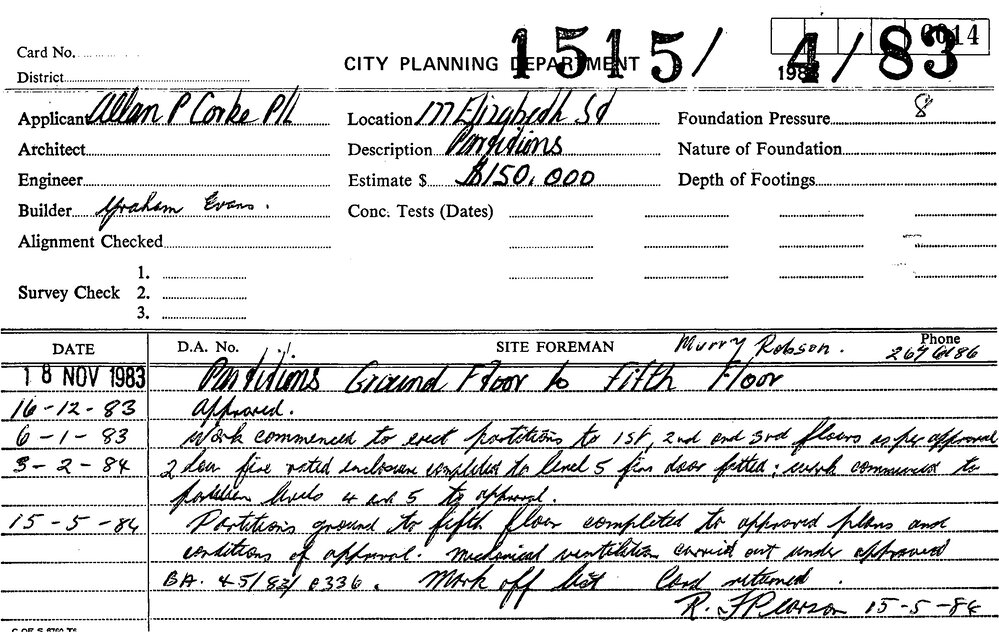 Card No.
0014
CITY PLANNING DEPARTMENT
1515/ 4/83
198
District
Applicant Allan P Corke P/L
Location 111 Elizabeth St
Foundation Pressure
Architect
Description Partitions
Nature of Foundation
Engineer
Estimate $ $150,000
Depth of Footings
Builder Graham Evans.
Conc. Tests (Dates)
Alignment Checked
Survey Check
1.
2.
3.
DATE D.A. No. SITE FOREMAN Murry Robson. Phone
18 NOV 1983 Partitions Ground Floor to Fifth Floor
16-12-83 approved.
6-1-83 Work commenced to erect partitions to 1st, 2nd and 3rd floors as per approval
3-2-84 2 hour fire rated enclosure completed to level 5 fire door fitted; work commenced to
partition levels 4 and 5 to approval.
15-5-84 Partitions ground to fifth floor completed to approved plans and
conditions of approval. Mechanical ventilation carried out under approved
BA. 45/82/0336. Mark off list Card returned.
R. F Pearson 15-5-84